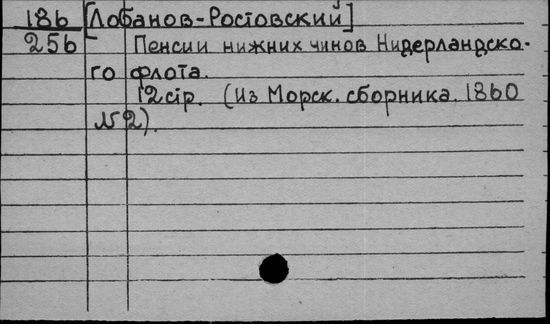 186 [Лобанов-Ростовский]
256 Пенсии нижних чинов Нидерландско-
го флота.
12 стр. (Из Морск. сборника. 1860
№ 2).